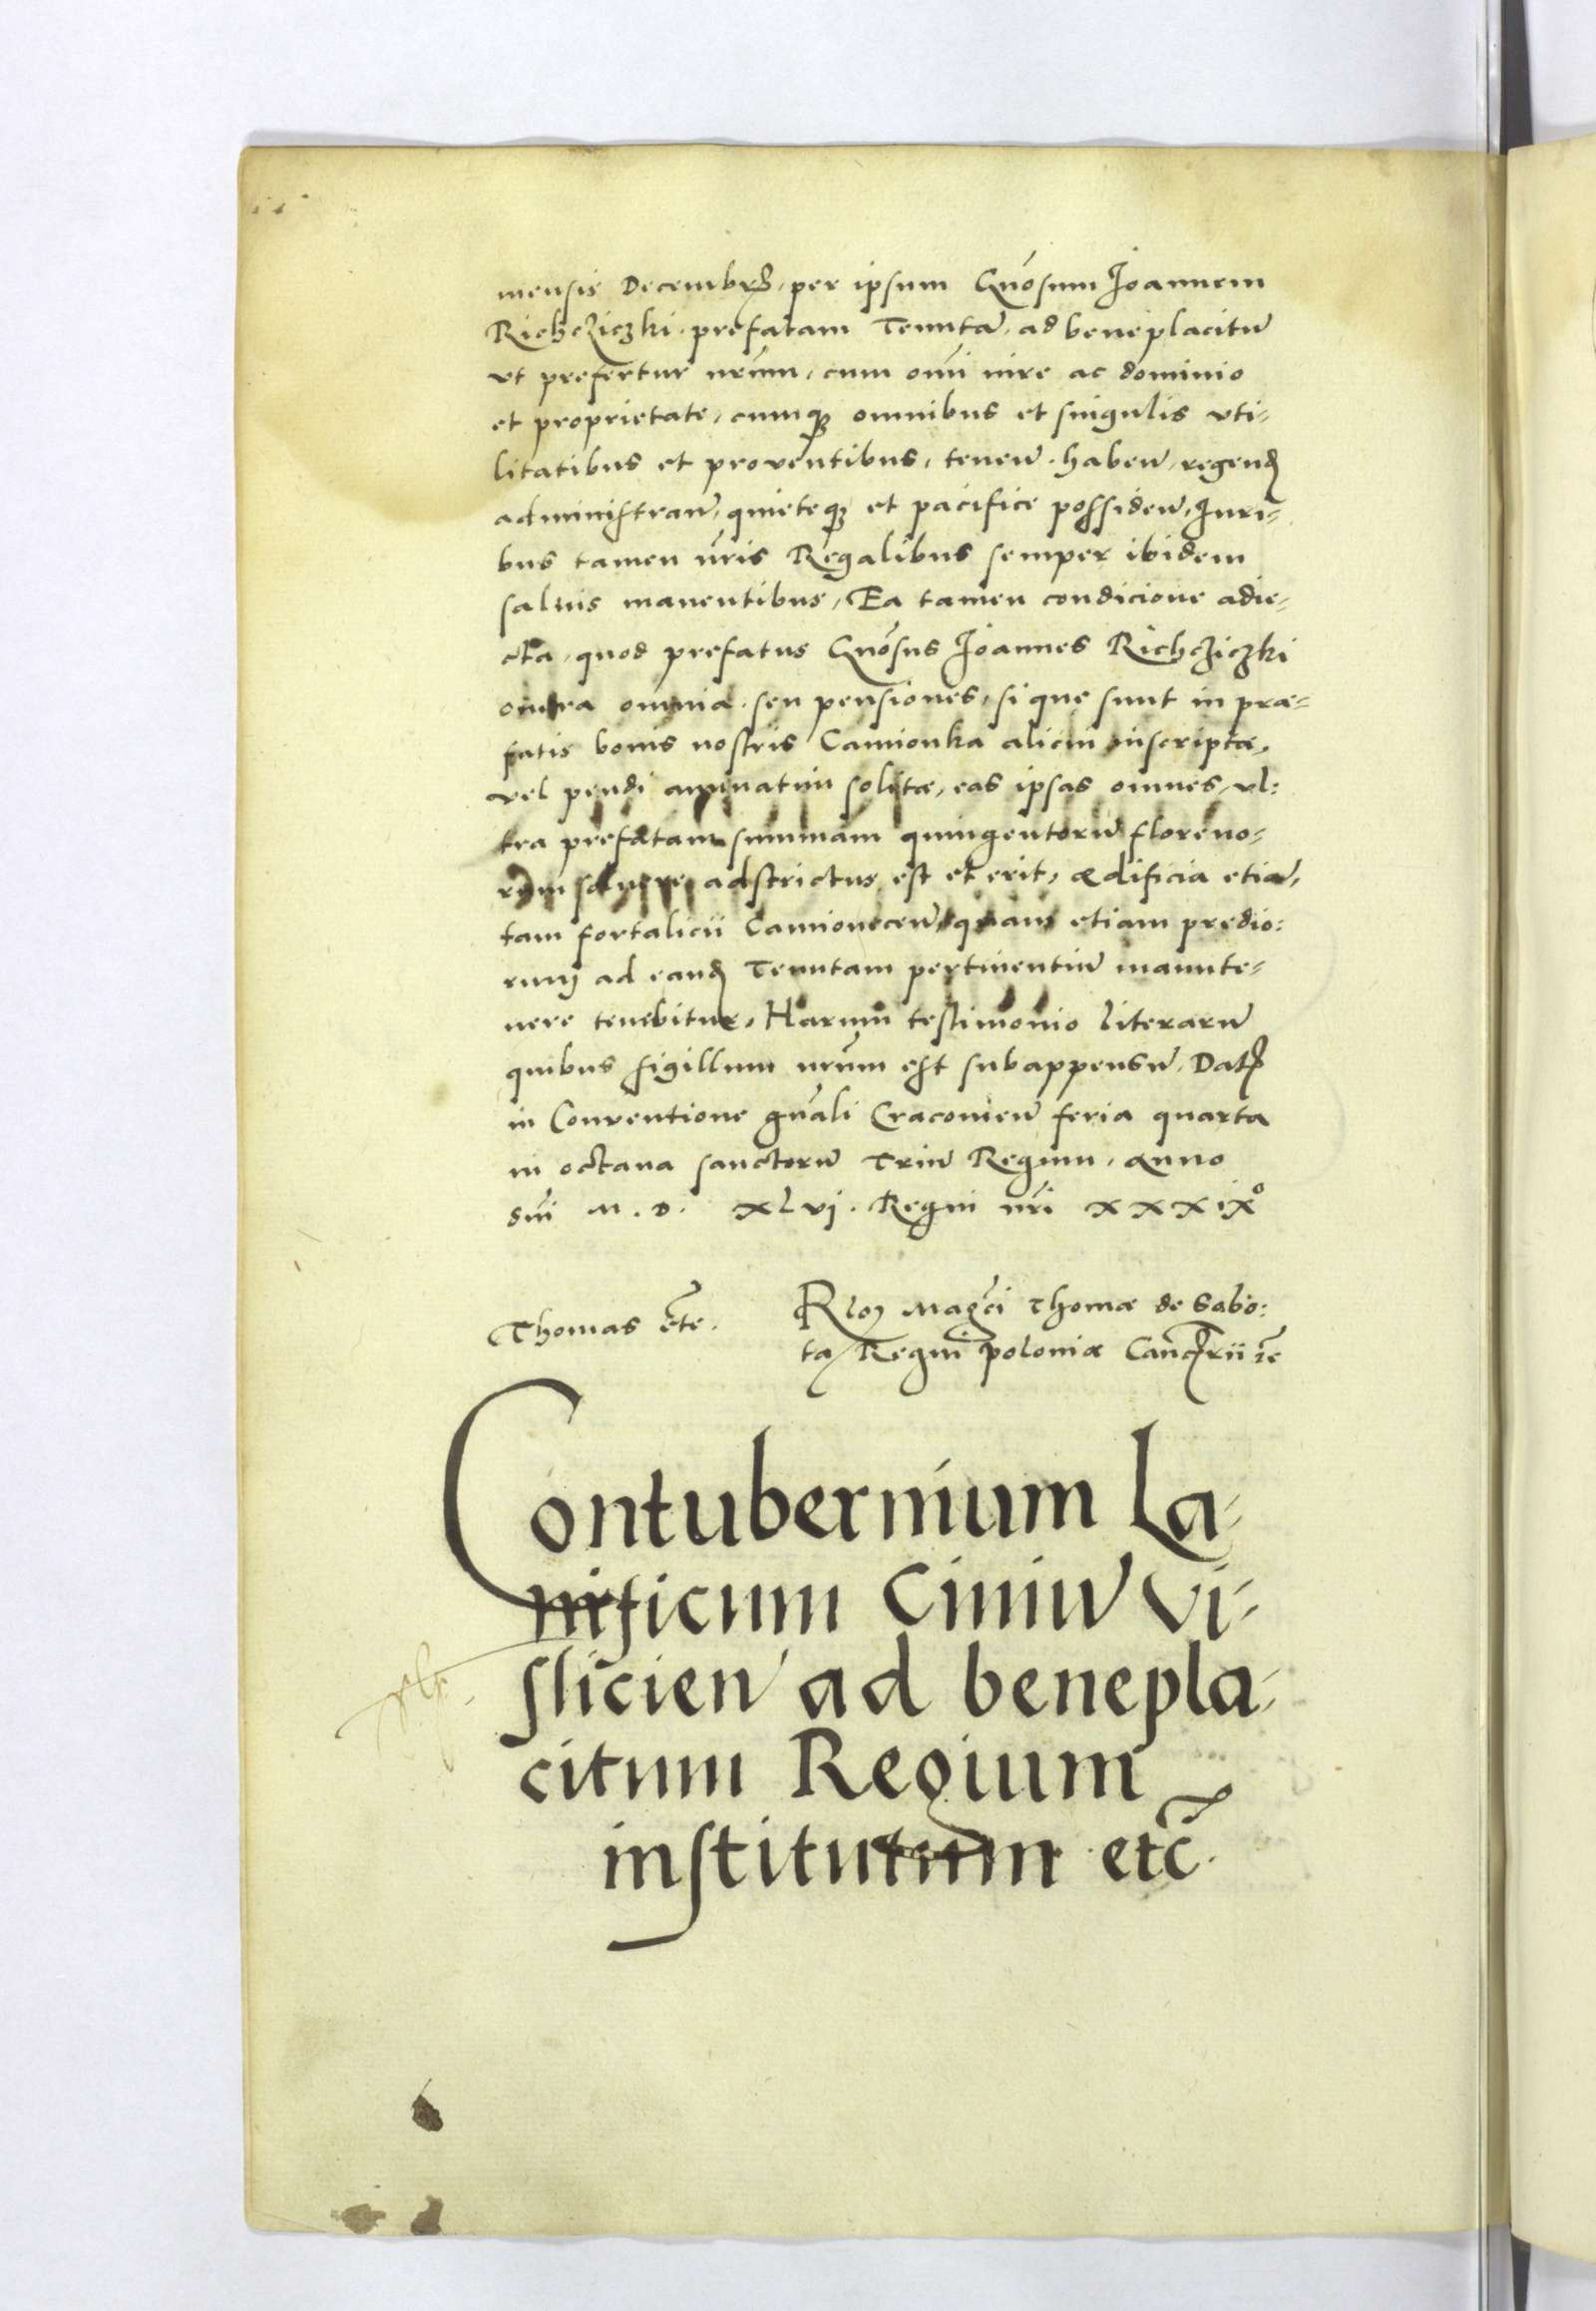 mensis Decembrꝭ, per ipsum Gn̄osum Joannem
Richcziczki. prefatam Tenutā, ad beneplacitū
vt prefertur nr̄um, cum om̄i iure ac dominio
et proprietate, cumqꝫ omnibus et singulis vti-
litatibus et proventibus, tenen̄. haben̄, regend̄
administran̄, quieteqꝫ et pacifice possiden̄, Juri-
bus tamen nr̄is Regalibus semper ibidem
saluis manentibus, Ea tamen condicione adie-
cta, quod prefatus Gn̄osus Joannes Richcziczki
onera omnia. seu pensiones, si que sunt in præ-
fatis bonis nostris Camionka alicui inscriptæ,
vel pendi annuatim solitæ, eas ipsas omnes, vl:
tra prefatam summam quingentorū floreno-
rum soluere adstrictus est et erit, ædificia etiā,
tam fortalicii Camionecen̄, quam etiam predio:
rum ad eand̄ Tenutam pertinentiū manute-
nere tenebitur, Harum testimonio literarū
quibus sigillum nr̄um est subappensū, Datꝭ
in Conventione gn̄ali Cracouien̄ feria quarta
in octaua sanctorū Triū Regum, anno
dn̄i M. D. XLVj. Regni nr̄i XXXiXº
Thomas etc̄.
Rlo Magci Thomæ de Sobo:
ta Regni poloniæ Canc̄rii zc̄
Contubernium La-
nificum Ciuiū Vi-
slicien̄ ad benepla-
citum Regium
institutum etc̄.